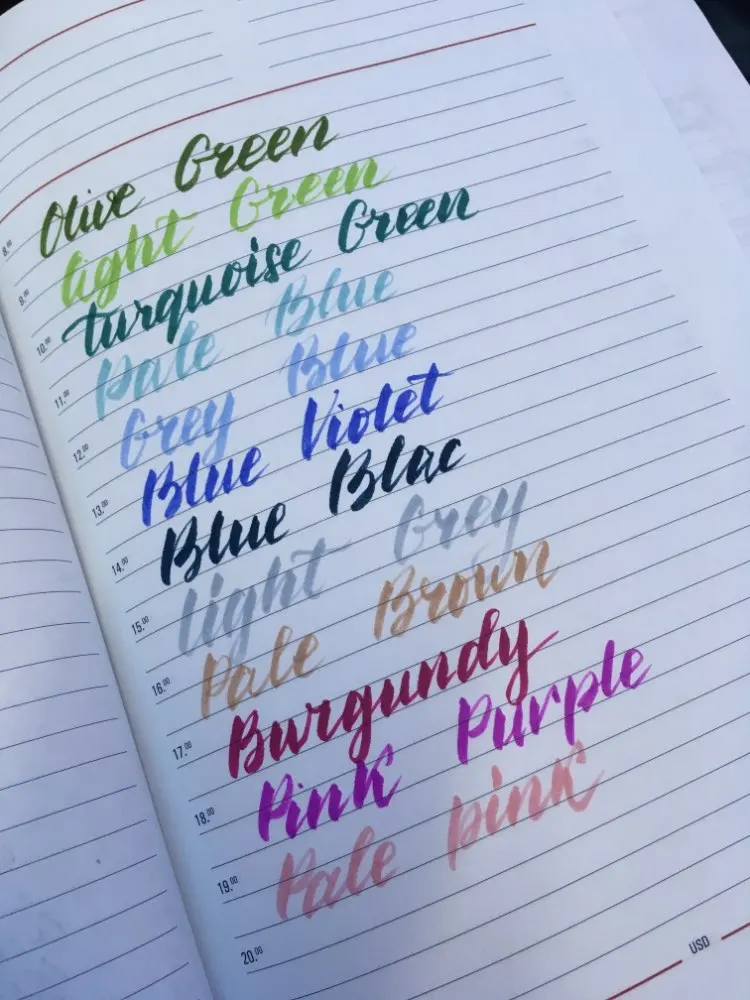 Olive Green
light Green
turquoise Green
Pale Blue
Grey Blue
Blue Violet
Blue Blac
light Grey
Pale Brown
Burgundy
Pink Purple
Pale pink
8.00
9.00
10.00
11.00
12.00
13.00
14.00
15.00
16.00
17.00
18.00
19.00
20.00
USD